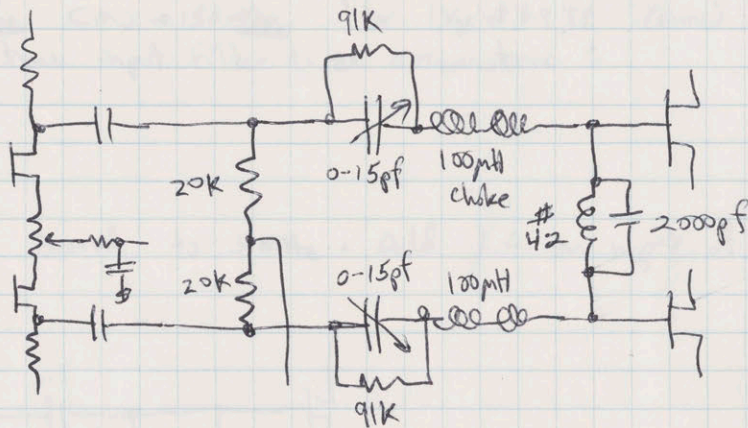 91K
20K
0-15pf
100µH
choke
#
42
2000pf
20K
0-15pf
100µH
91K